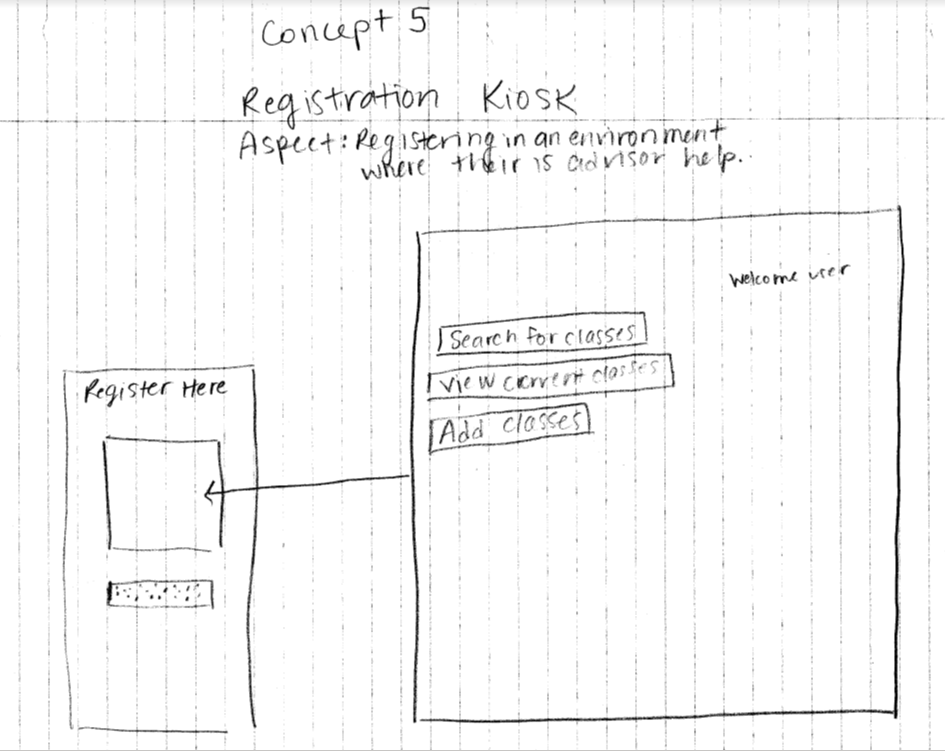 Concept 5
Registration Kiosk
Aspect: Registering in an environment
where their is advisor help..
Welcome user
Search for classes
View current classes
Add classes
Register Here